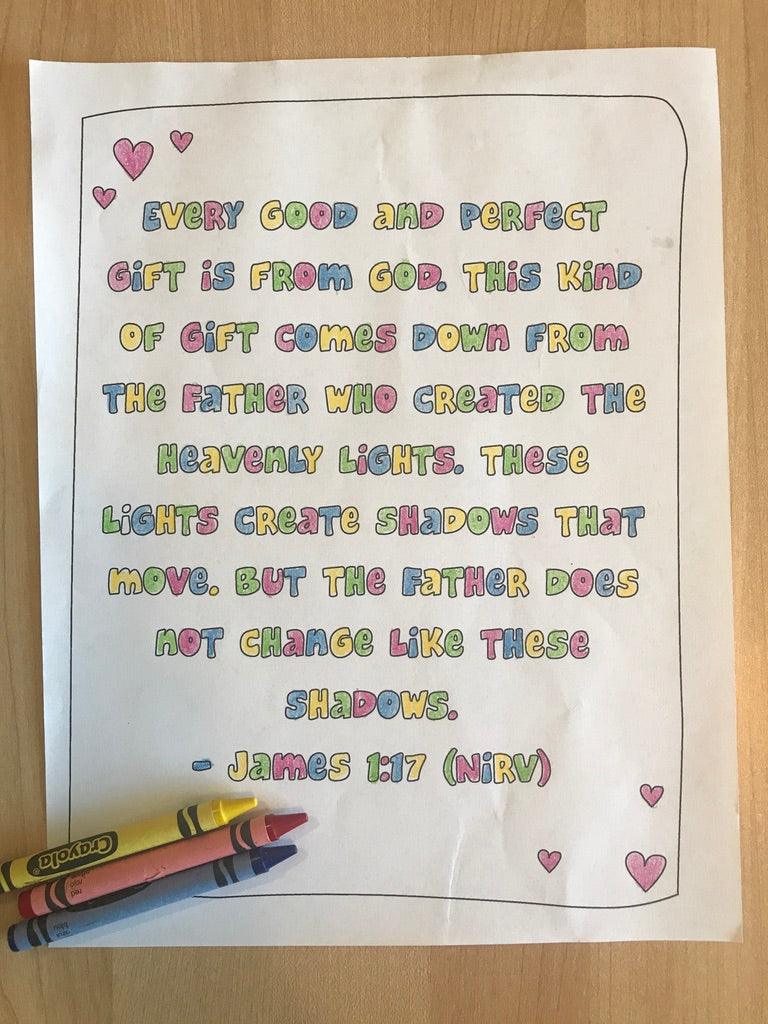 EVERY GOOD AND PERFECT
GIFT IS FROM GOD. THIS KIND
OF GIFT COMES DOWN FROM
THE FATHER WHO CREATED THE
HEAVENLY LIGHTS. THESE
LIGHTS CREATE SHADOWS THAT
MOVE. BUT THE FATHER DOES
NOT CHANGE LIKE THESE
SHADOWS.
- James 1:17 (NiRV)
Crayola
red
rojo
blue
azul